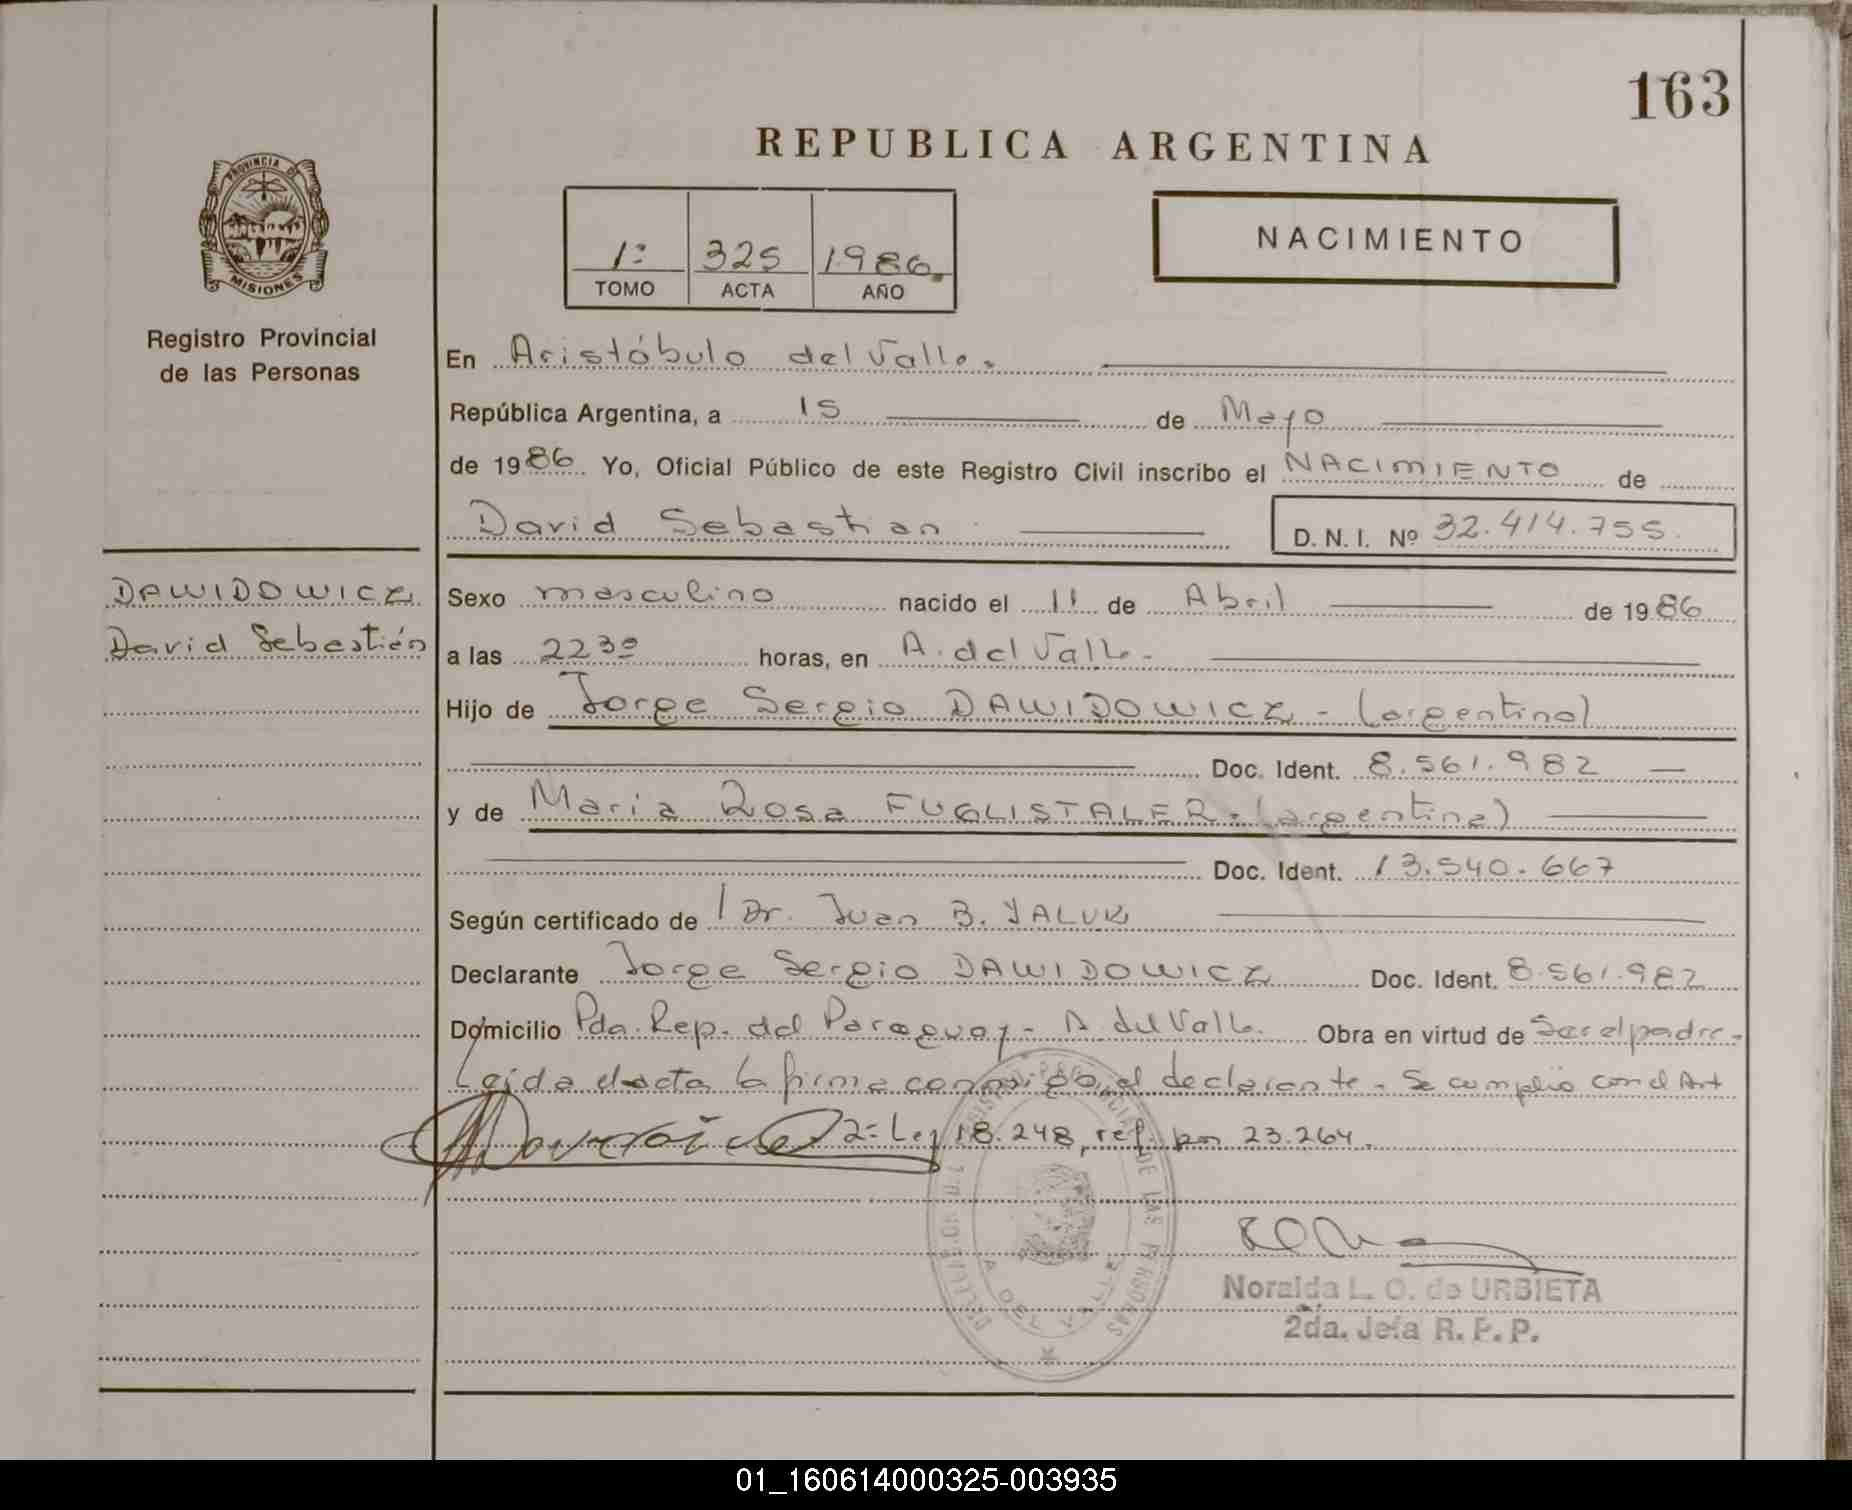 163
REPUBLICA ARGENTINA
PROVINCIA DE
MISIONES
Registro Provincial
de las Personas
1º 325 1986.
TOMO ACTA AÑO
NACIMIENTO
En Aristóbulo del Valle.
República Argentina, a 15 de Mayo
de 1986. Yo, Oficial Público de este Registro Civil inscribo el NACIMIENTO de
David Sebastian D. N. I. Nº 32.414.755.
DAWIDOWICZ
David Sebastián
Sexo masculino nacido el 11 de Abril de 1986
a las 22³⁰ horas, en A. del Valle.
Hijo de Jorge Sergio DAWIDOWICZ - (argentino)
Doc. Ident. 8.561.982
y de Maria Rosa FUGLISTALER. (argentina)
Doc. Ident. 13.540.667
Según certificado de Dr. Juan B. YALUK
Declarante Jorge Sergio DAWIDOWICZ Doc. Ident. 8.561.982
Domicilio Pda. Rep. del Paraguay - A. del Valle. Obra en virtud de Ser el padre -
Leida el acta la firma conmigo el declarante. Se cumplio con el Art
2º Ley 18.248, ref. por 23.264.
DE LAS PERSONAS
Noralda L. O. de URBIETA
2da. Jefa R. P. P.
01_160614000325-003935